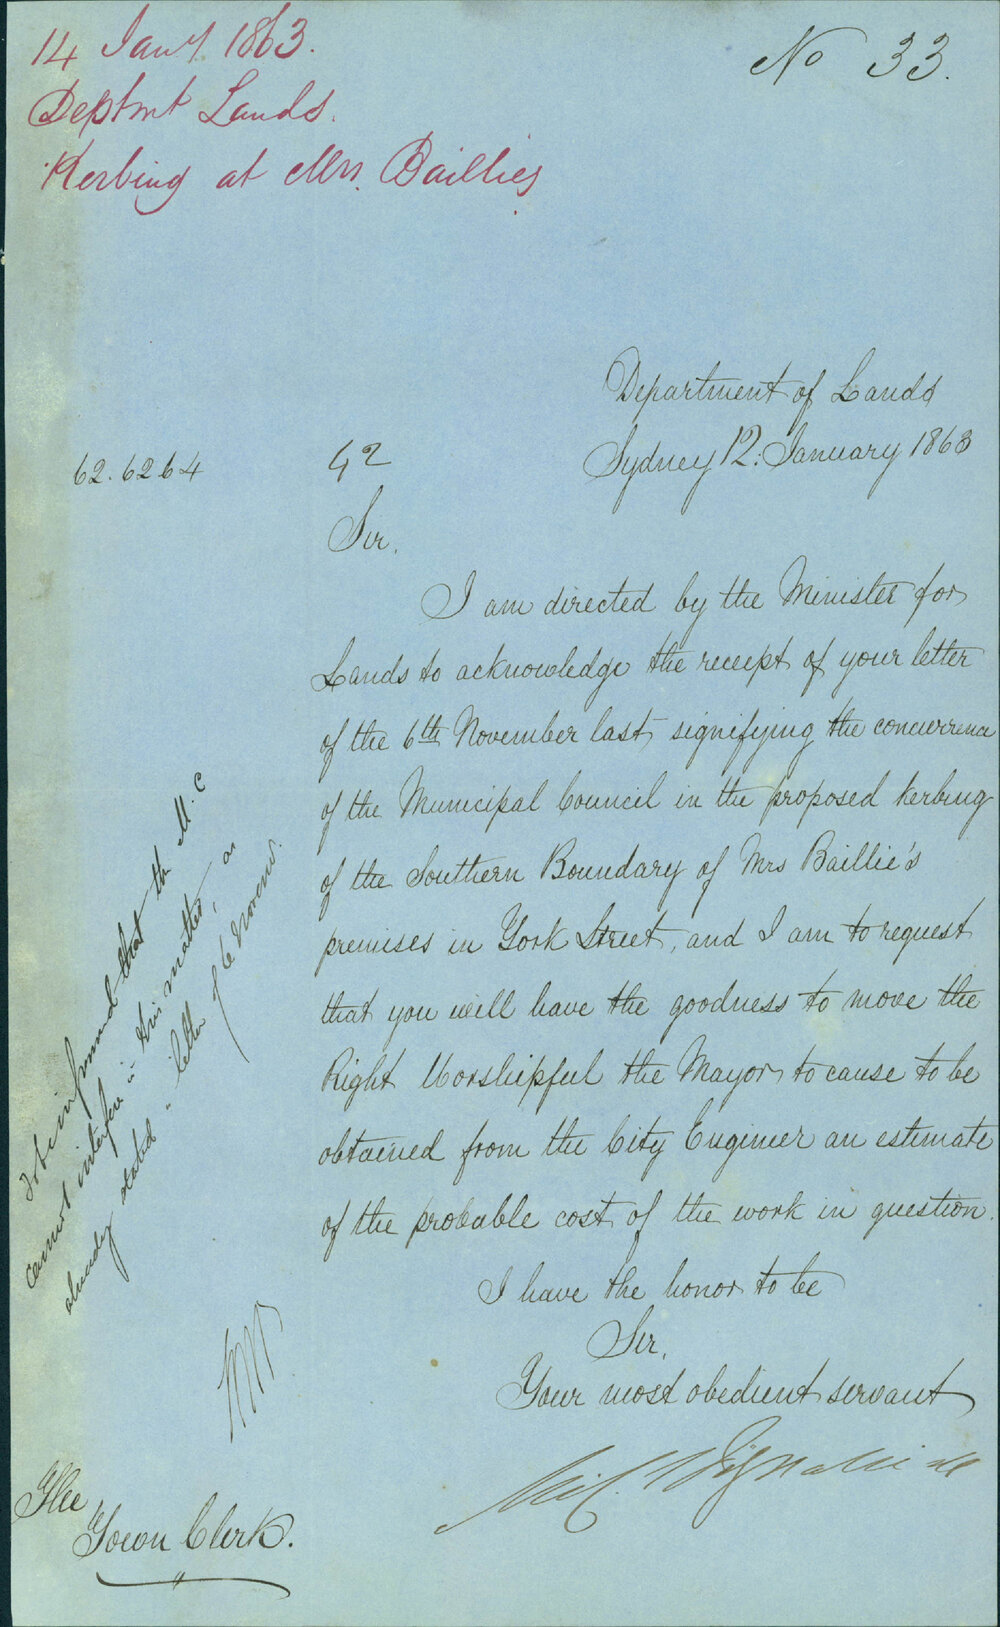 14 Jany. 1863.
Deptmt Lands.
Kerbing at Mrs. Baillies
No 33.
Department of Lands
Sydney 12. January 1863
62.6264
42
Sir,
I am directed by the Minister for
Lands to acknowledge the receipt of your letter
of the 6th November last signifying the concurrence
of the Municipal Council in the proposed kerbing
of the Southern Boundary of Mrs Baillie's
premises in York Street, and I am to request
that you will have the goodness to move the
Right Worshipful the Mayor to cause to be
obtained from the City Engineer an estimate
of the probable cost of the work in question.
I have the honor to be
Sir,
Your most obedient servant
The
Town Clerk.
To be informed that the M.C
cannot interfere in this matter, as
already stated in letter of 6 Novemr.